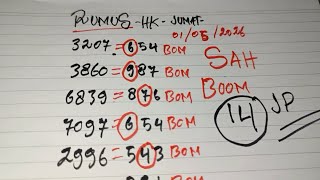 RUMUS -HK- JUMAT-
01/05/2026
3207=654 BOM
3860=987 BOM
6839=876 BOM
7097=654 BOM
2996=543 BOM
SAH
BOOM
14 JP